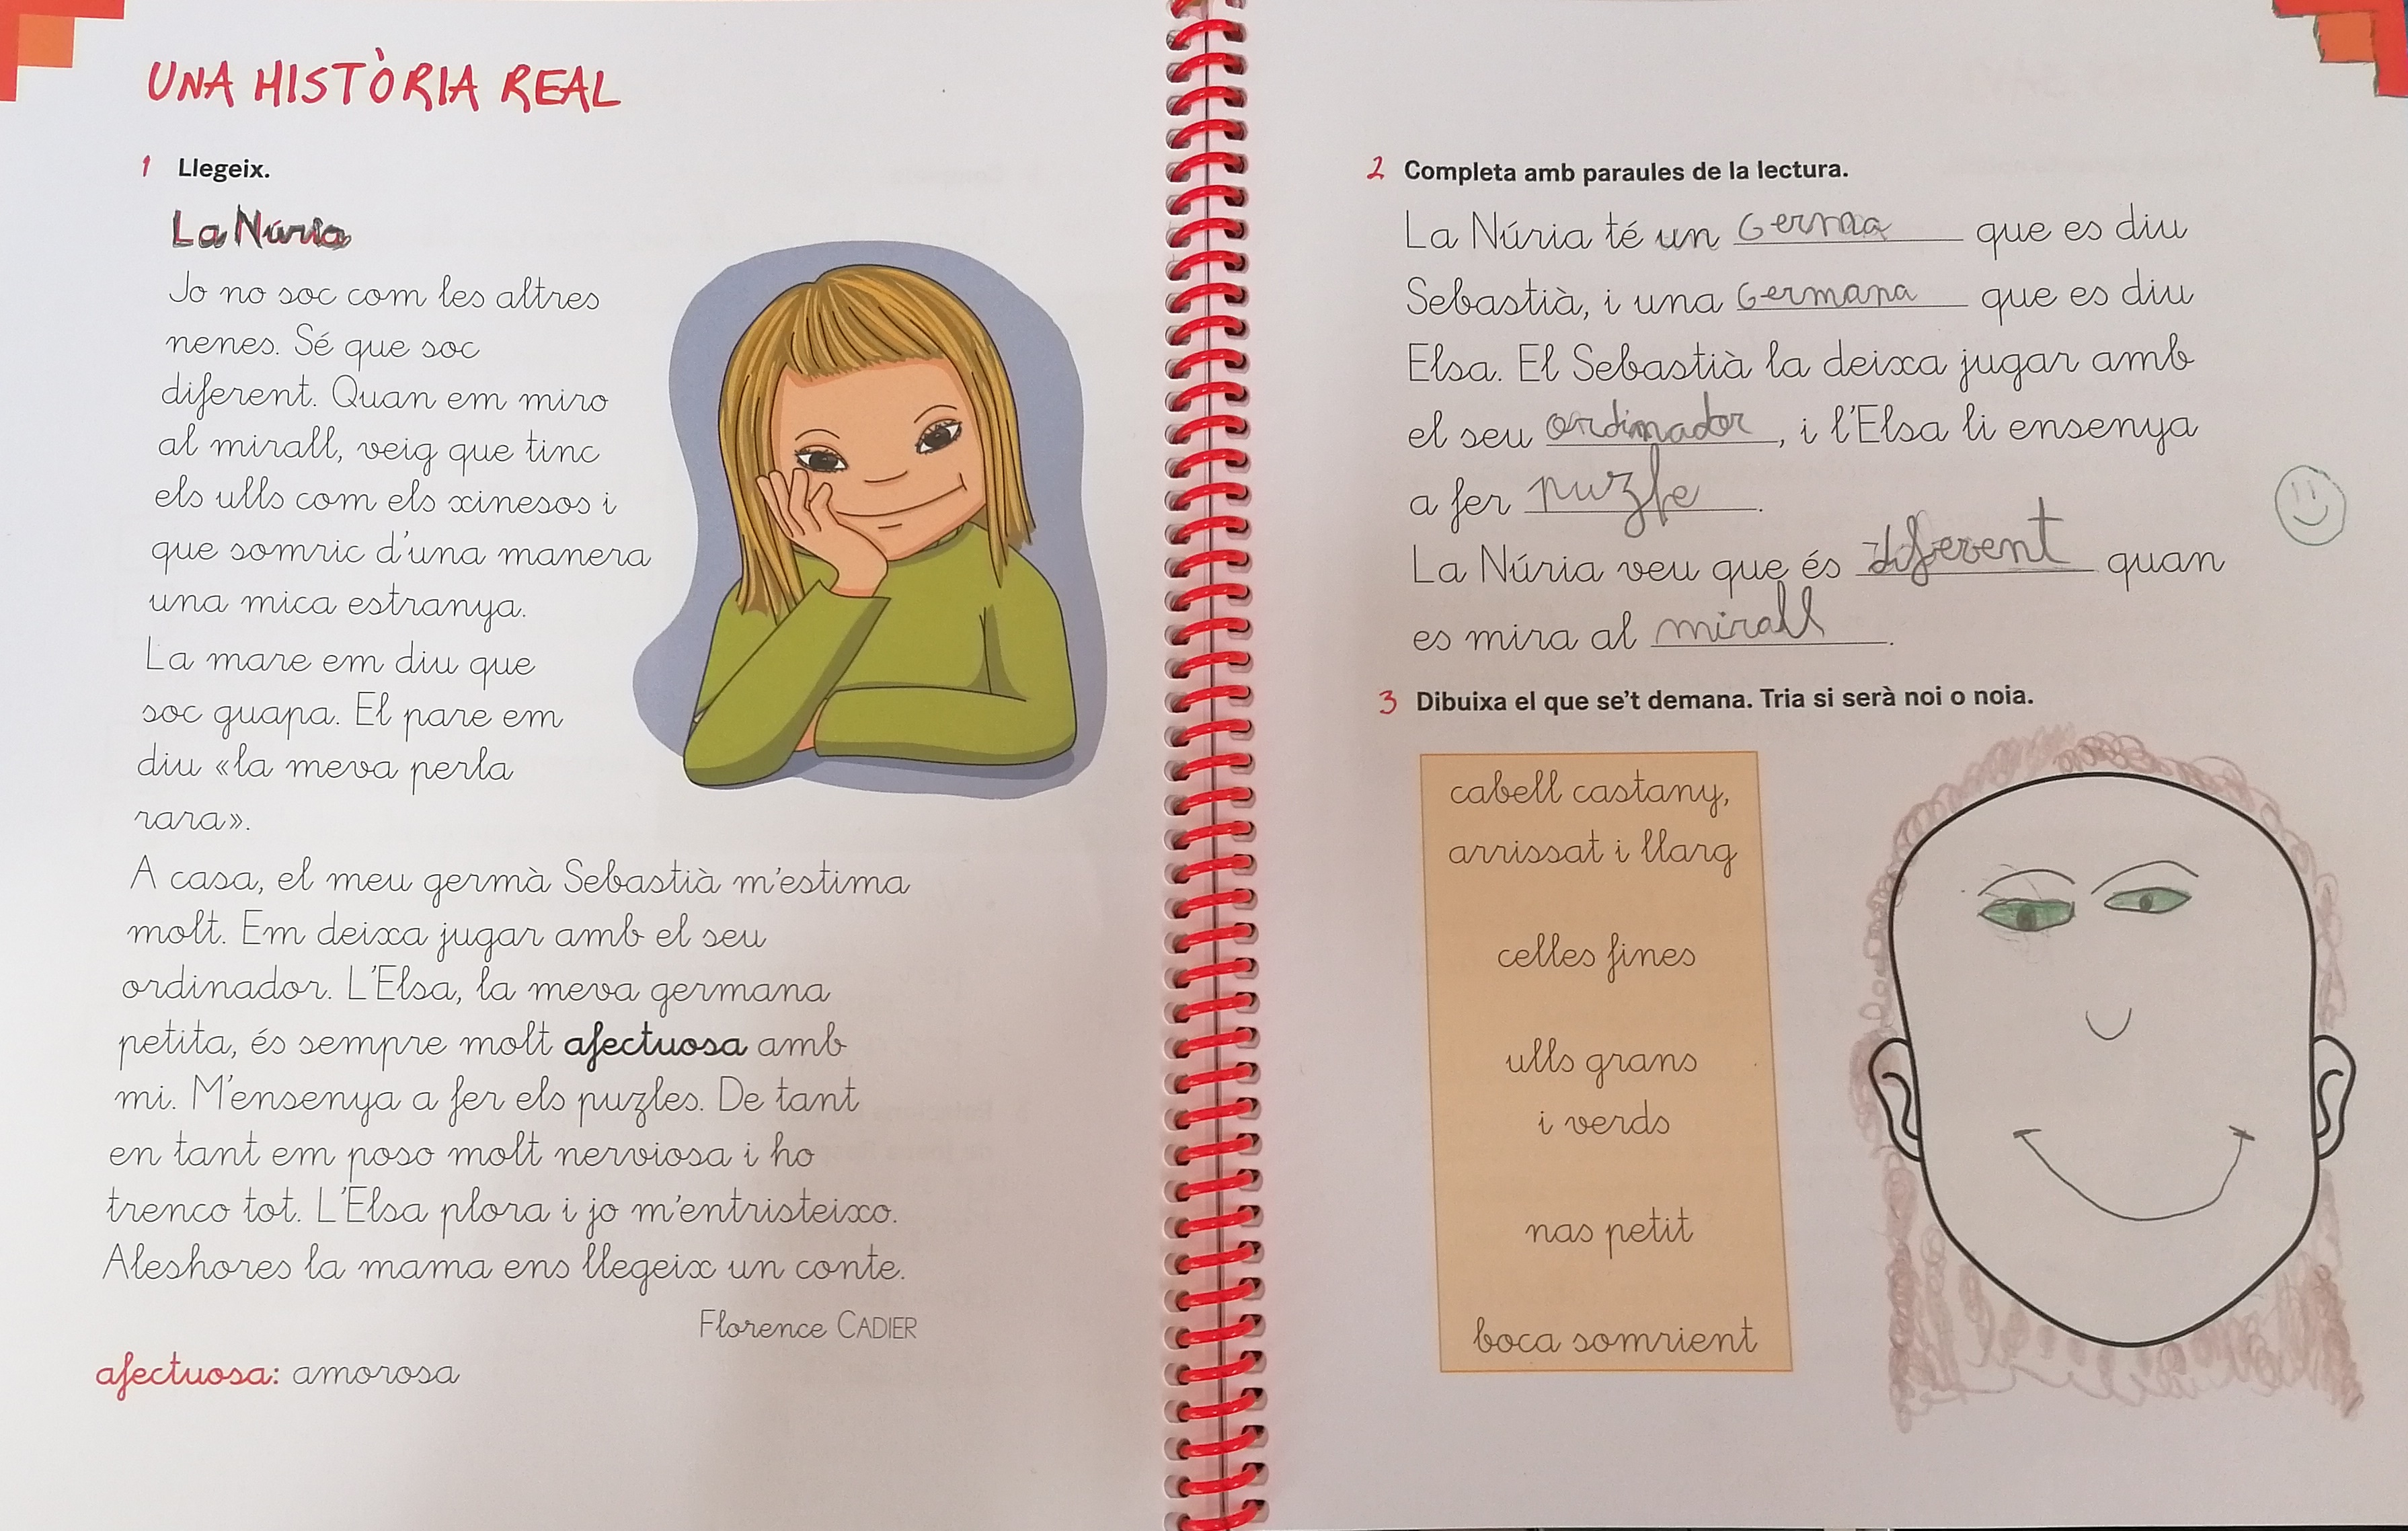 UNA HISTÒRIA REAL
1 Llegeix.
La Núria
Jo no soc com les altres
nenes. Sé que soc
diferent. Quan em miro
al mirall, veig que tinc
els ulls com els xinesos i
que somric d'una manera
una mica estranya.
La mare em diu que
soc guapa. El pare em
diu «la meva perla
rara».
A casa, el meu germà Sebastià m'estima
molt. Em deixa jugar amb el seu
ordinador. L'Elsa, la meva germana
petita, és sempre molt afectuosa amb
mi. M'ensenya a fer els puzles. De tant
en tant em poso molt nerviosa i ho
trenco tot. L'Elsa plora i jo m'entristeixo.
Aleshores la mama ens llegeix un conte.
Florence CADIER
afectuosa: amorosa
2 Completa amb paraules de la lectura.
La Núria té un Germa que es diu
Sebastià, i una Germana que es diu
Elsa. El Sebastià la deixa jugar amb
el seu ordinador, i l'Elsa li ensenya
a fer puzle.
La Núria veu que és diferent quan
es mira al mirall.
3 Dibuixa el que se't demana. Tria si serà noi o noia.
cabell castany,
arrissat i llarg
celles fines
ulls grans
i verds
nas petit
boca somrient